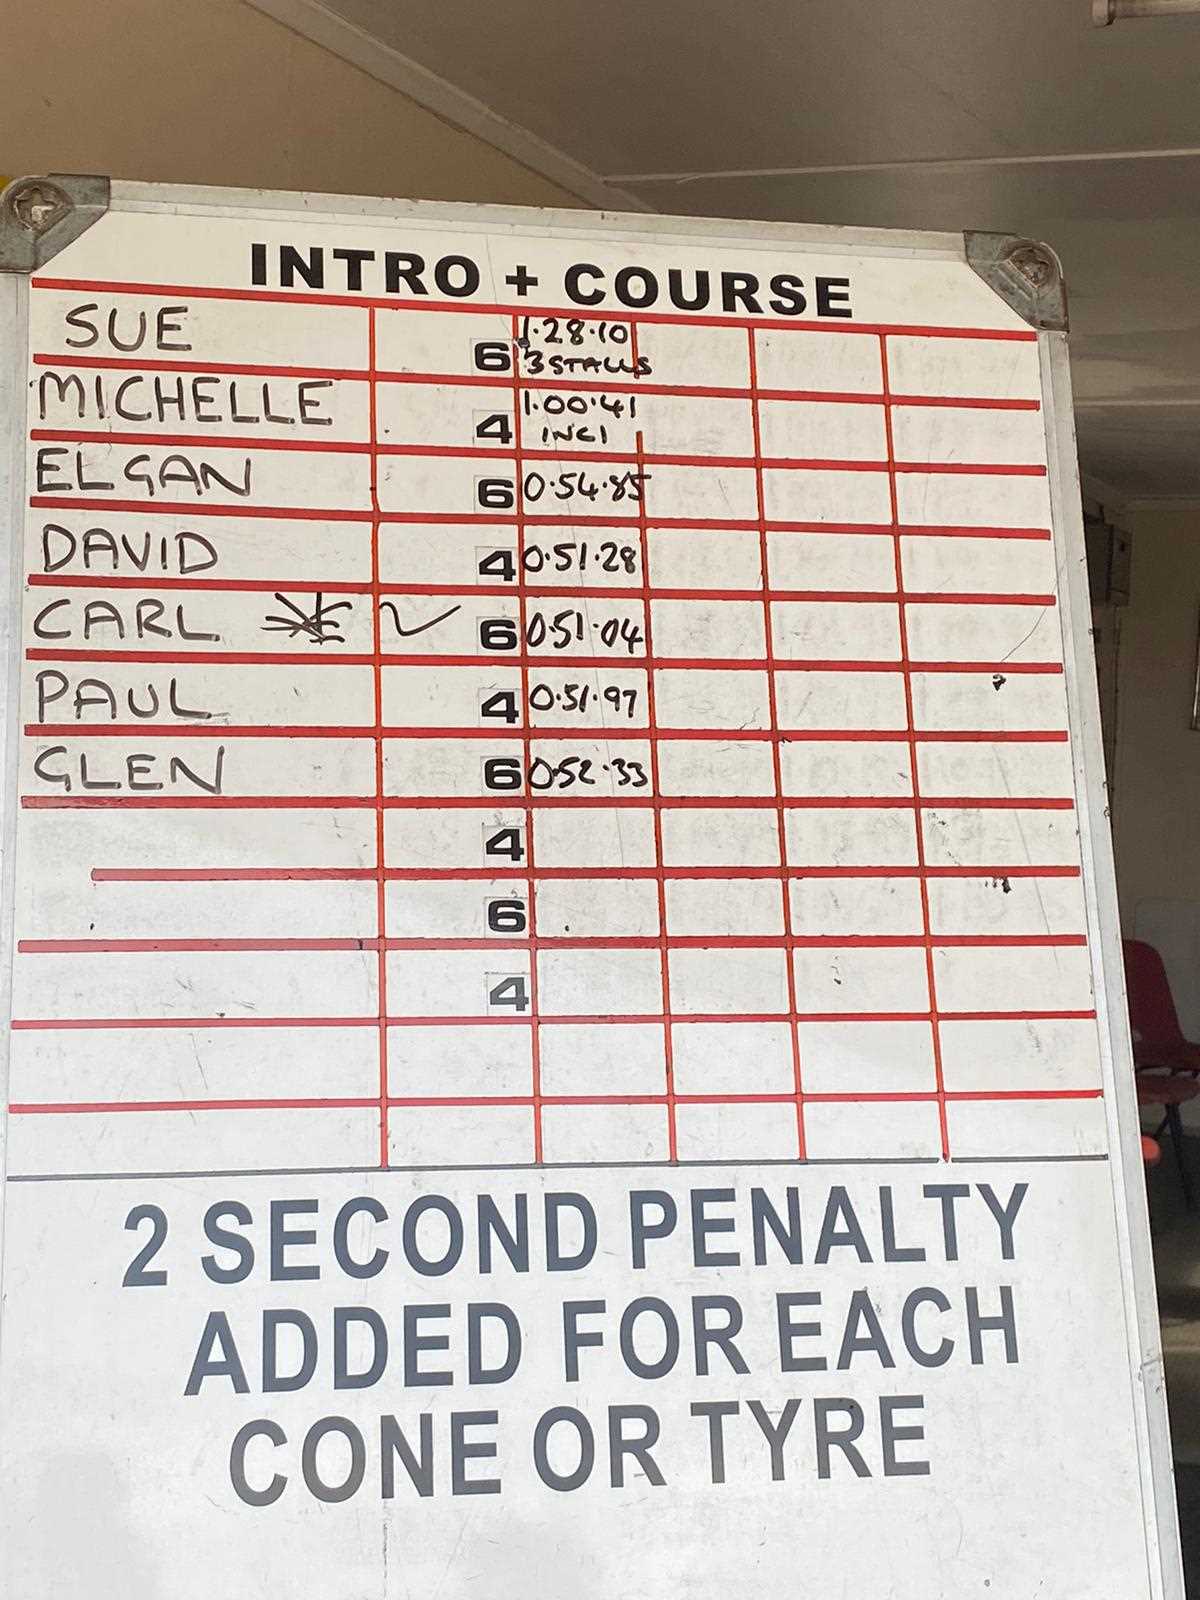 INTRO + COURSE
SUE 6 1.28.10
3 STALLS
MICHELLE 4 1.00.41
INC 1
ELGAN 6 0.54.85
DAVID 4 0.51.28
CARL 6 0.51.04
PAUL 4 0.51.97
GLEN 6 0.52.33
4
6
4
2 SECOND PENALTY
ADDED FOR EACH
CONE OR TYRE